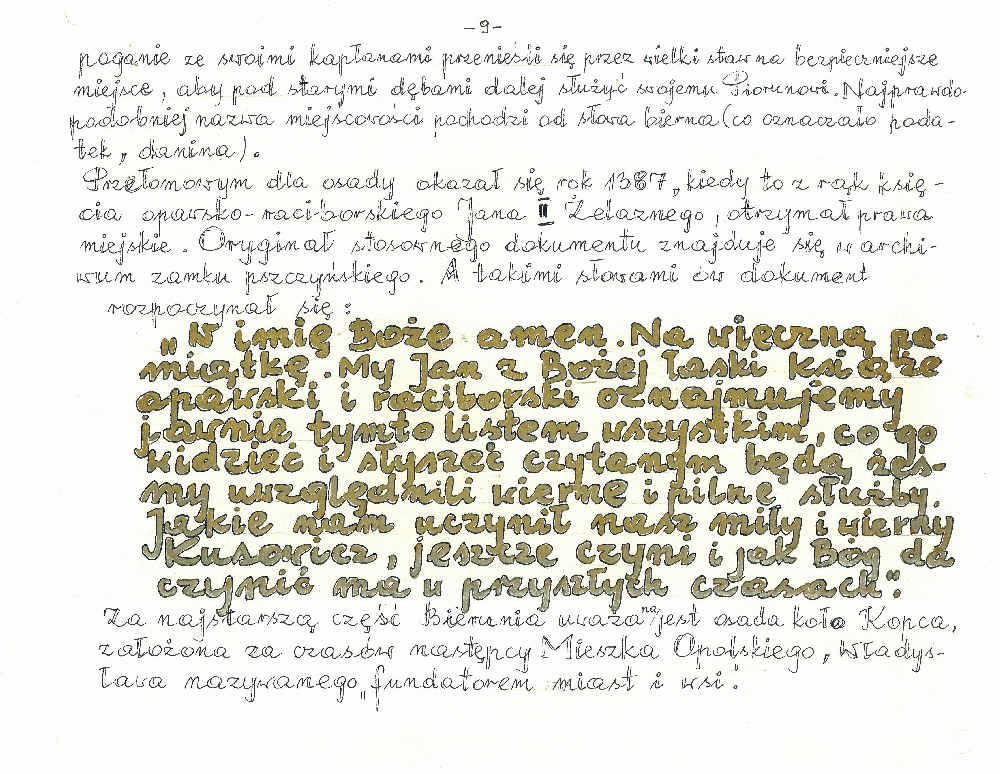 -9-
poganie ze swoimi kapłanami przenieśli się przez wielki staw na bezpieczniejsze
miejsce, aby pod starymi dębami dalej służyć swojemu Piorunowi. Najprawdo-
podobniej nazwa miejscowości pochodzi od słowa bierna (co oznaczało poda-
tek, danina).
Przełomowym dla osady okazał się rok 1387, kiedy to z rąk księ-
cia opawsko-raciborskiego Jana II Żelaznego, otrzymał prawa
miejskie. Oryginał stosownego dokumentu znajduje się w archi-
wum zamku pszczyńskiego. A takimi słowami ów dokument
rozpoczynał się:
„W imię Boże amen. Na wieczną pa-
miątkę. My Jan z Bożej łaski książe
opawski i raciborski oznajmujemy
jawnie tymto listem wszystkim, co go
widzieć i słyszeć czytanym będą żeś-
my uwzględnili wierne i pilne służby.
Jakie nam uczynił nasz miły i wierny
Kusowicz, jeszcze czyni i jak Bóg da
czynić ma w przyszłych czasach".
Za najstarszą część Bierunia uważana jest osada koło Kopca,
założona za czasów następcy Mieszka Opolskiego, Władys-
ława nazywanego „fundatorem miast i wsi".